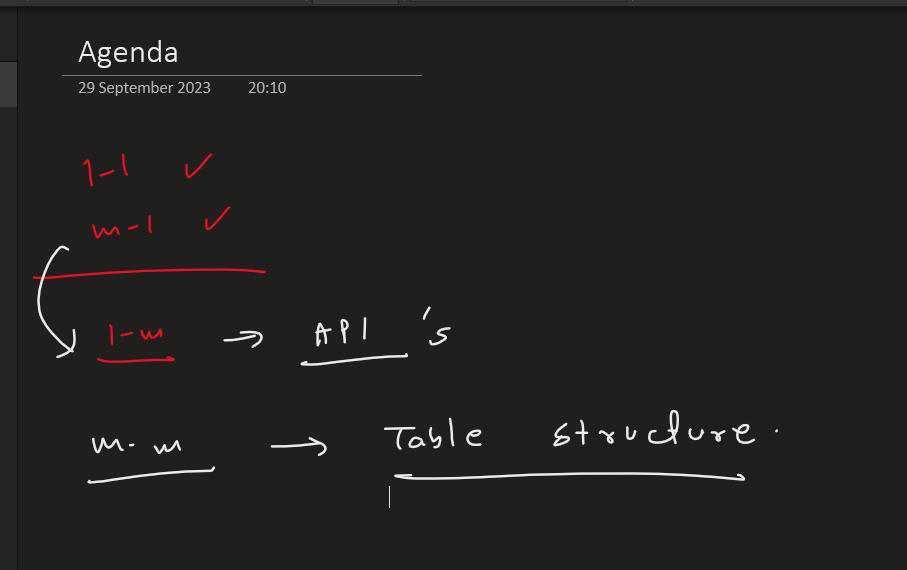 Agenda
29 September 2023 20:10
1-1 ✓
m-1 ✓
1-m → API's
m-m → Table structure.